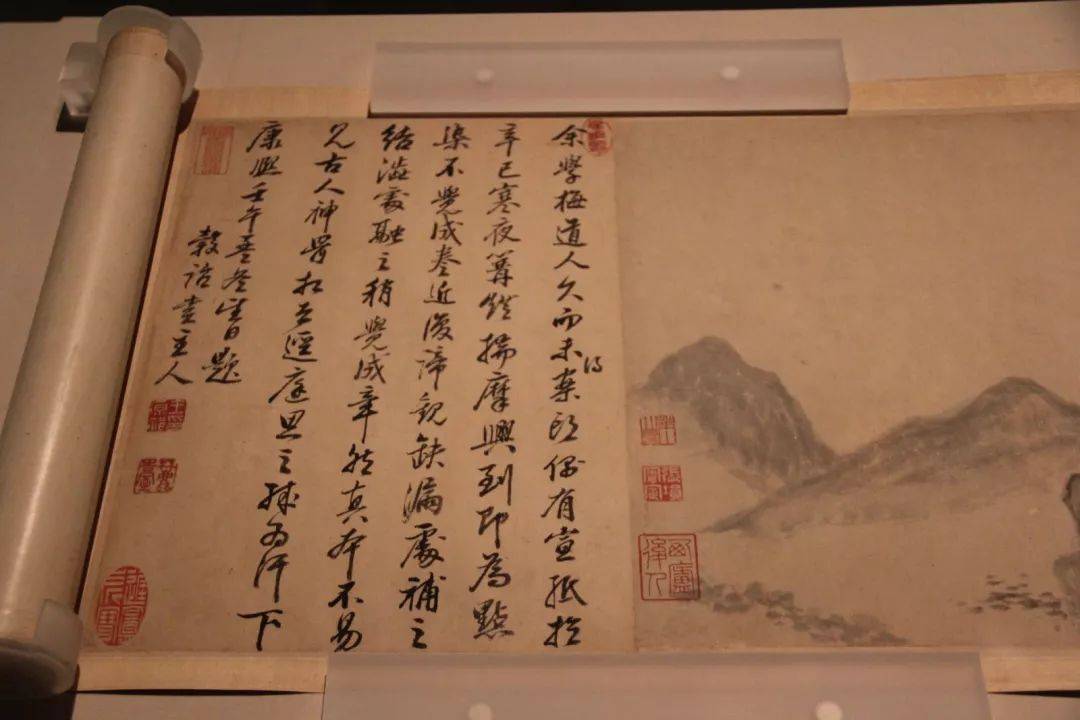 余學梅道人久而未得案頭偶有宣紙於
辛巳寒夜篝燈揣摩興到即為點
染不覺成卷近復諦觀缺漏處補之
結澁處融之稍覺成章然真本不易
見古人神骨相去逕庭思之殊為汗下
康熙壬午孟冬日題
穀詒堂主人